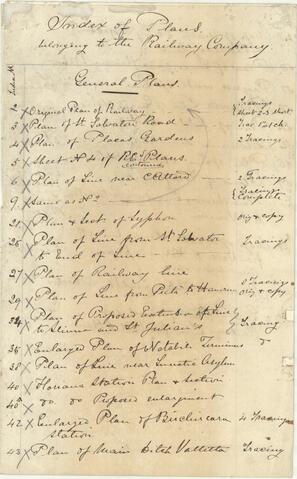 Index of Plans
belonging to the Railway Company
General Plans.
2 Original Plan of Railway Tracings Sheet 2 & 3 short
3 Plan of St Salvatore Road Trac.
4 Plan of Placas Gardens 2 Tracings
5 Sheet No 4 of Plans
6 Plan of Line near C. Attard 2 Tracings
9 Same as No 2 Tracings Complete
21 Plan & Sect of Syphon orig & copy
26 Plan of Line from St Salvator Tracings
to End of Line
27 Plan of Railway Line
29 Plan of Line from Pietà to Hamrun 3 Tracings orig & copy
34 Plan of Proposed Extension of Line
to Sliema and St Julian's Tracing
35 Enlarged Plan of Notabile Terminus
38 Plan of Line near Lunatic Asylum
40 Station Plan & Section
40a do do Proposed enlargement
42 Enlarged Plan of Birchircara 4 Tracings
Station
43 Plan of Main Ditch Valletta Tracing